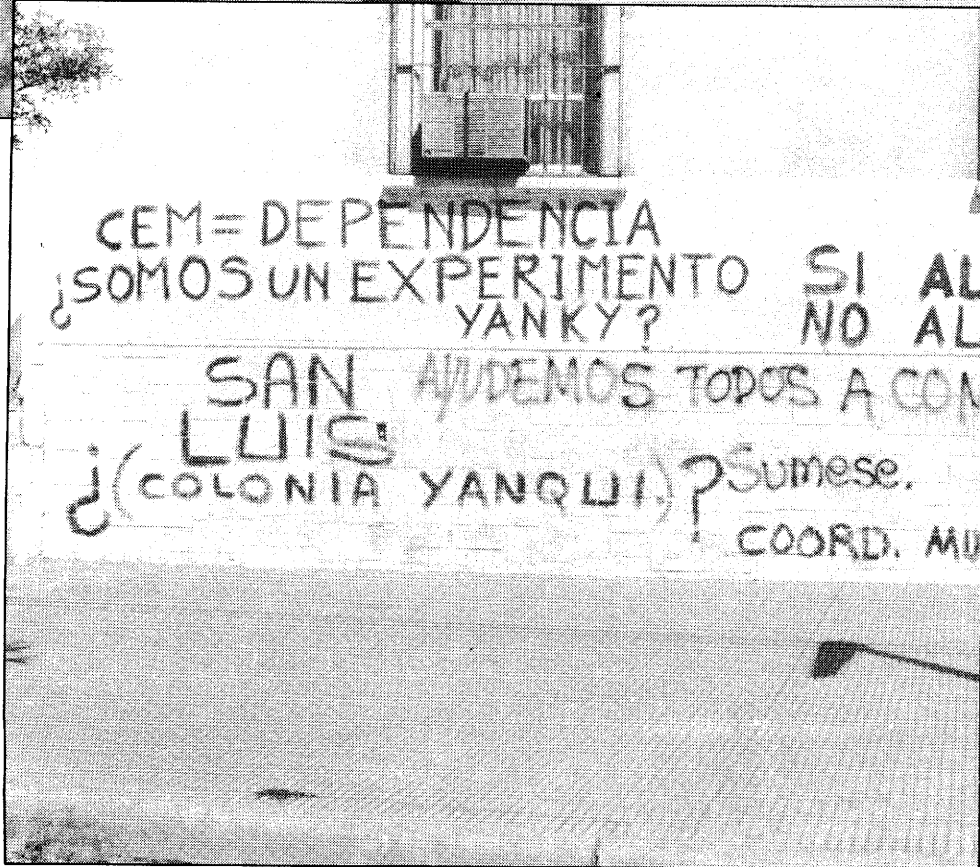 CEM = DEPENDENCIA
¿SOMOS UN EXPERIMENTO
YANKY?
SI AL
NO AL
SAN
LUIS
¿(COLONIA YANQUI.)?
AYUDEMOS TODOS A CON
Sumese.
COORD. MU